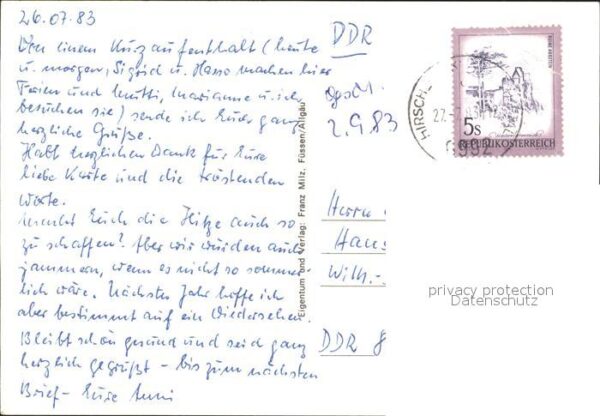 26.07.83
Von einem Kurzaufenthalt (heute
u. morgen, Sigrid u. Hasso machen hier
Ferien und Mutti, Marianne u. ich
besuchen sie) sende ich Euch ganz
herzliche Grüße.
Habt herzlichen Dank für Eure
liebe Karte und die tröstenden
Worte.
Macht Euch die Hitze auch so
zu schaffen? Aber wir würden auch
jammern, wenn es nicht so sommer-
lich wäre. Nächstes Jahr hoffe ich
aber bestimmt auf ein Wiedersehen.
Bleibt schön gesund und seid ganz
herzlich gegrüßt - bis zum nächsten
Brief - Eure Anni
Eigentum und Verlag: Franz Milz, Füssen/Allgäu
DDR
2.9.83
Herrn
Hans
Wilh.-
DDR 8
HIRSCH
6992
5s
REPUBLIK ÖSTERREICH
RUINE AGGSTEIN
privacy protection
Datenschutz